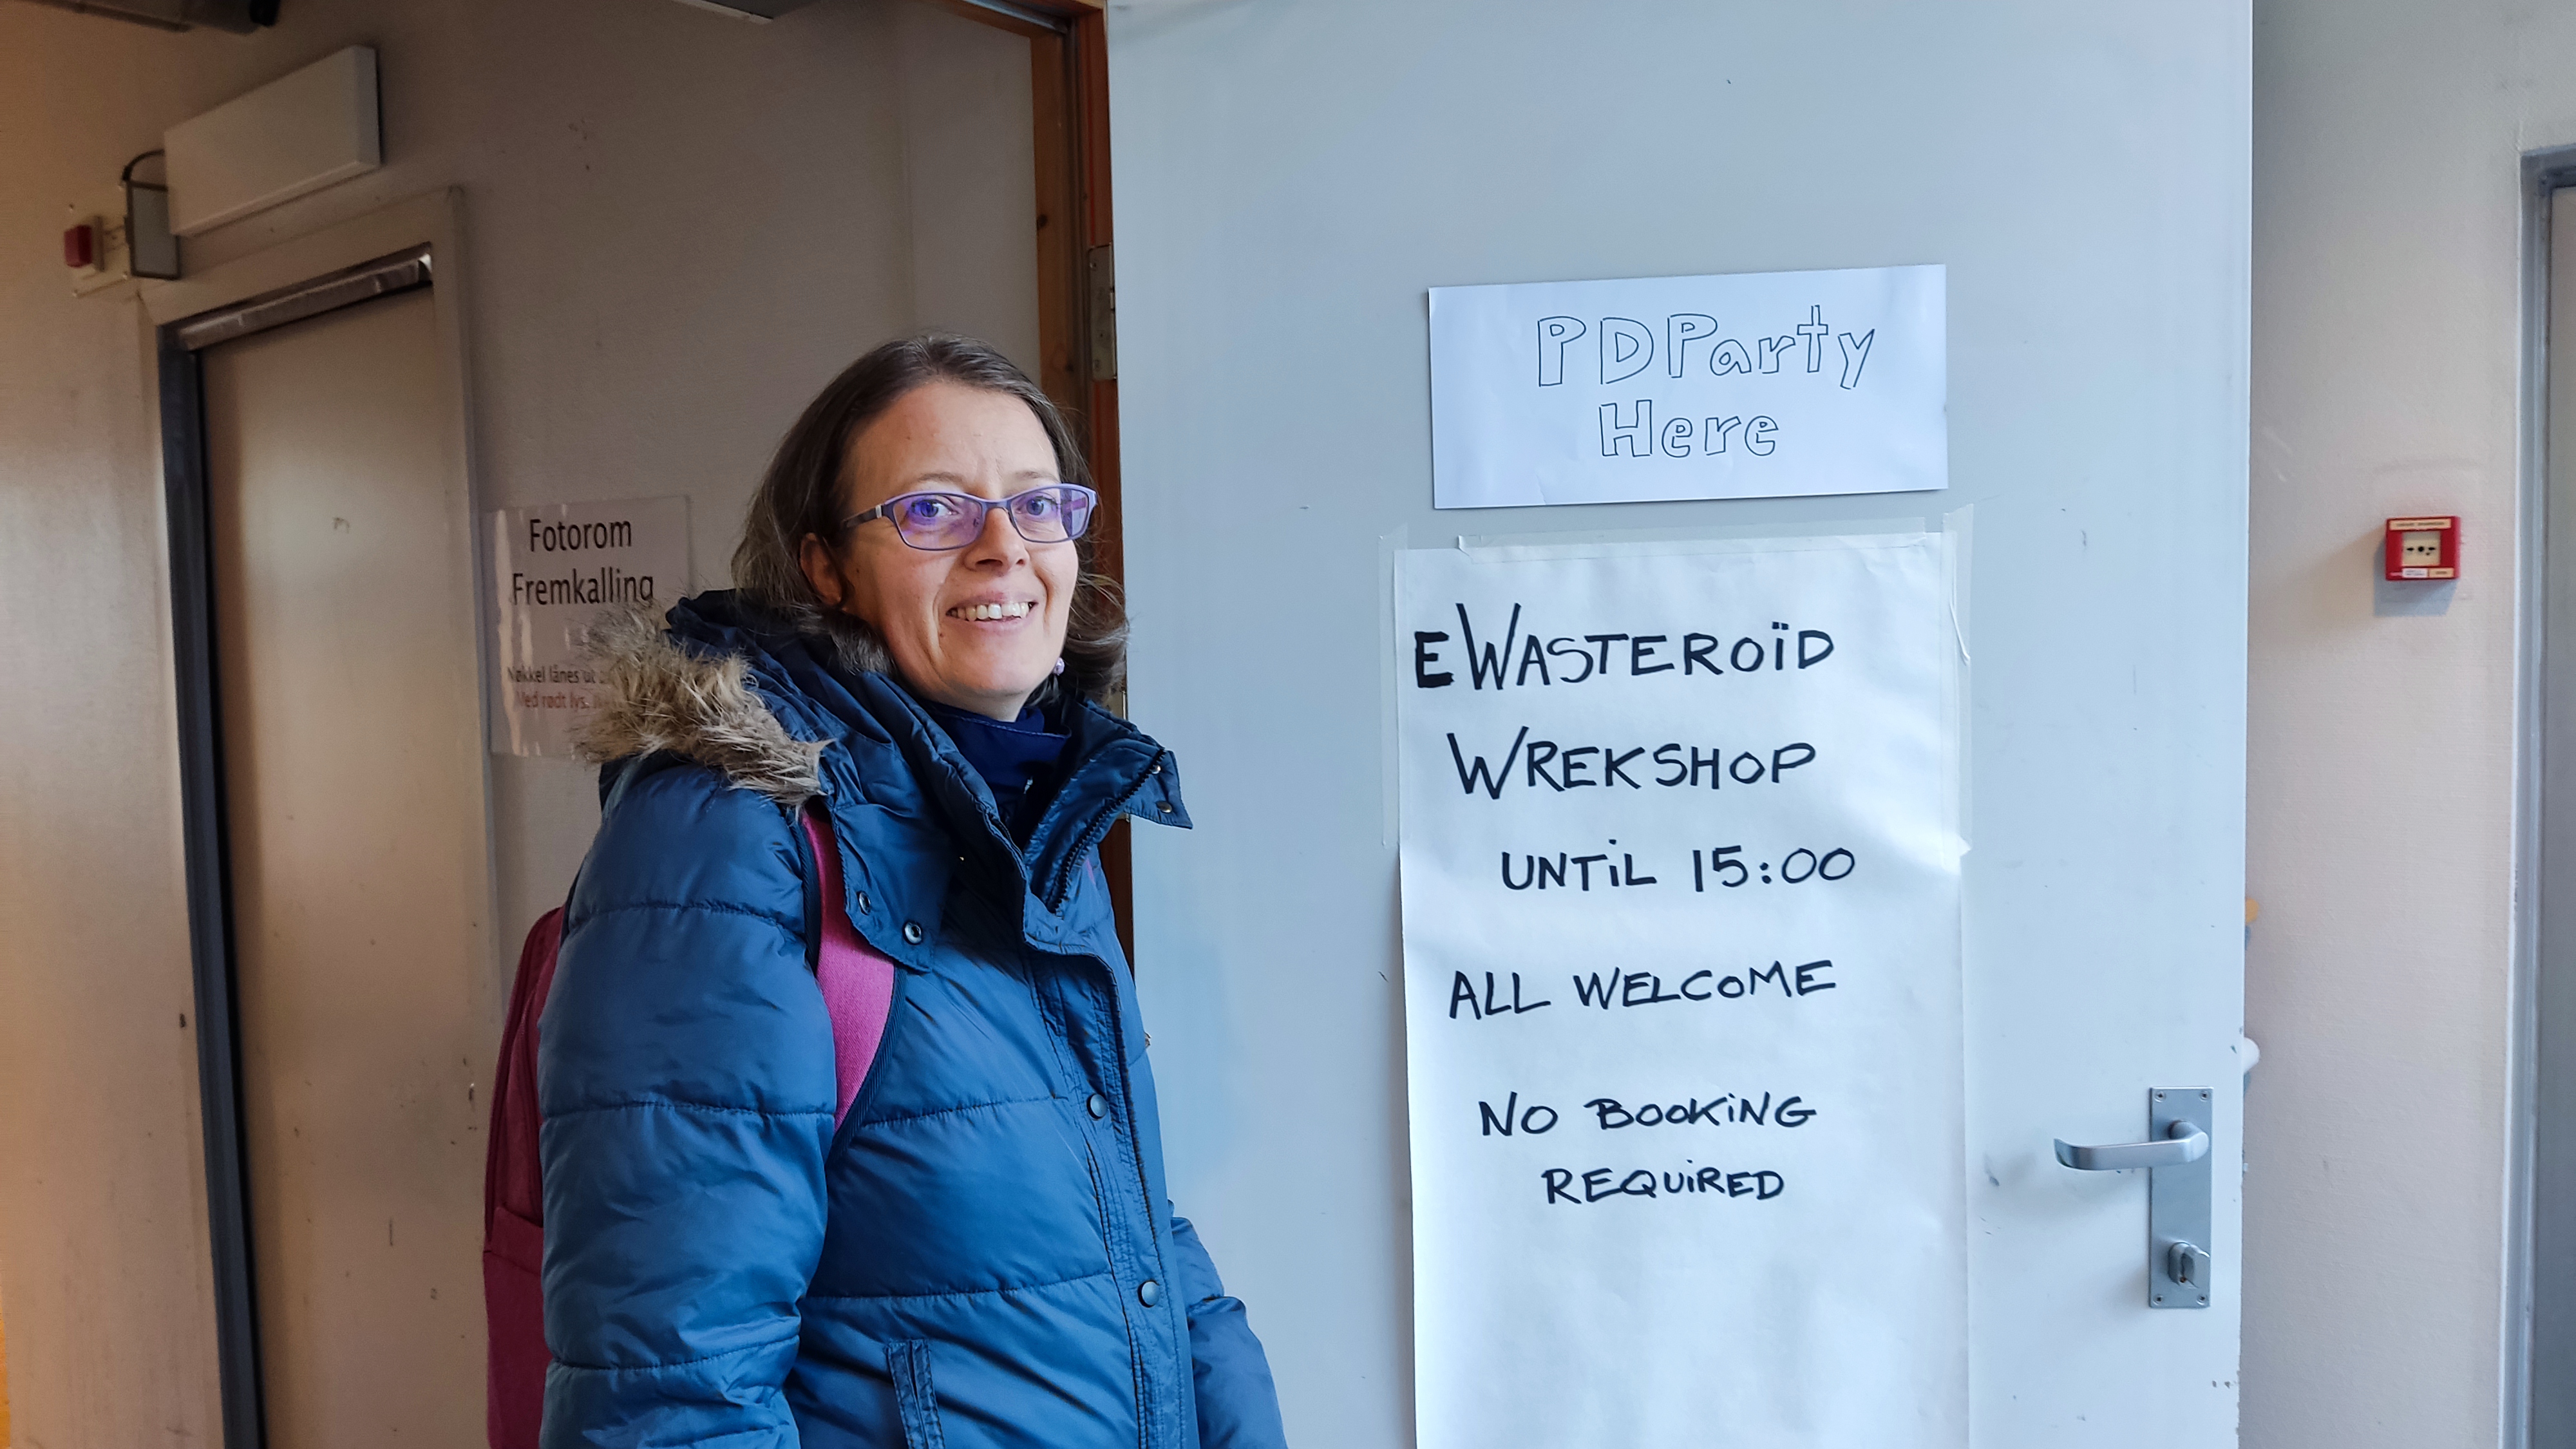 PDParty
Here
EWASTEROÏD
WREKSHOP
UNTIL 15:00
ALL WELCOME
NO BOOKING
REQUIRED
Fotorom
Fremkalling
Nøkkel lånes ut
Med rødt lys.